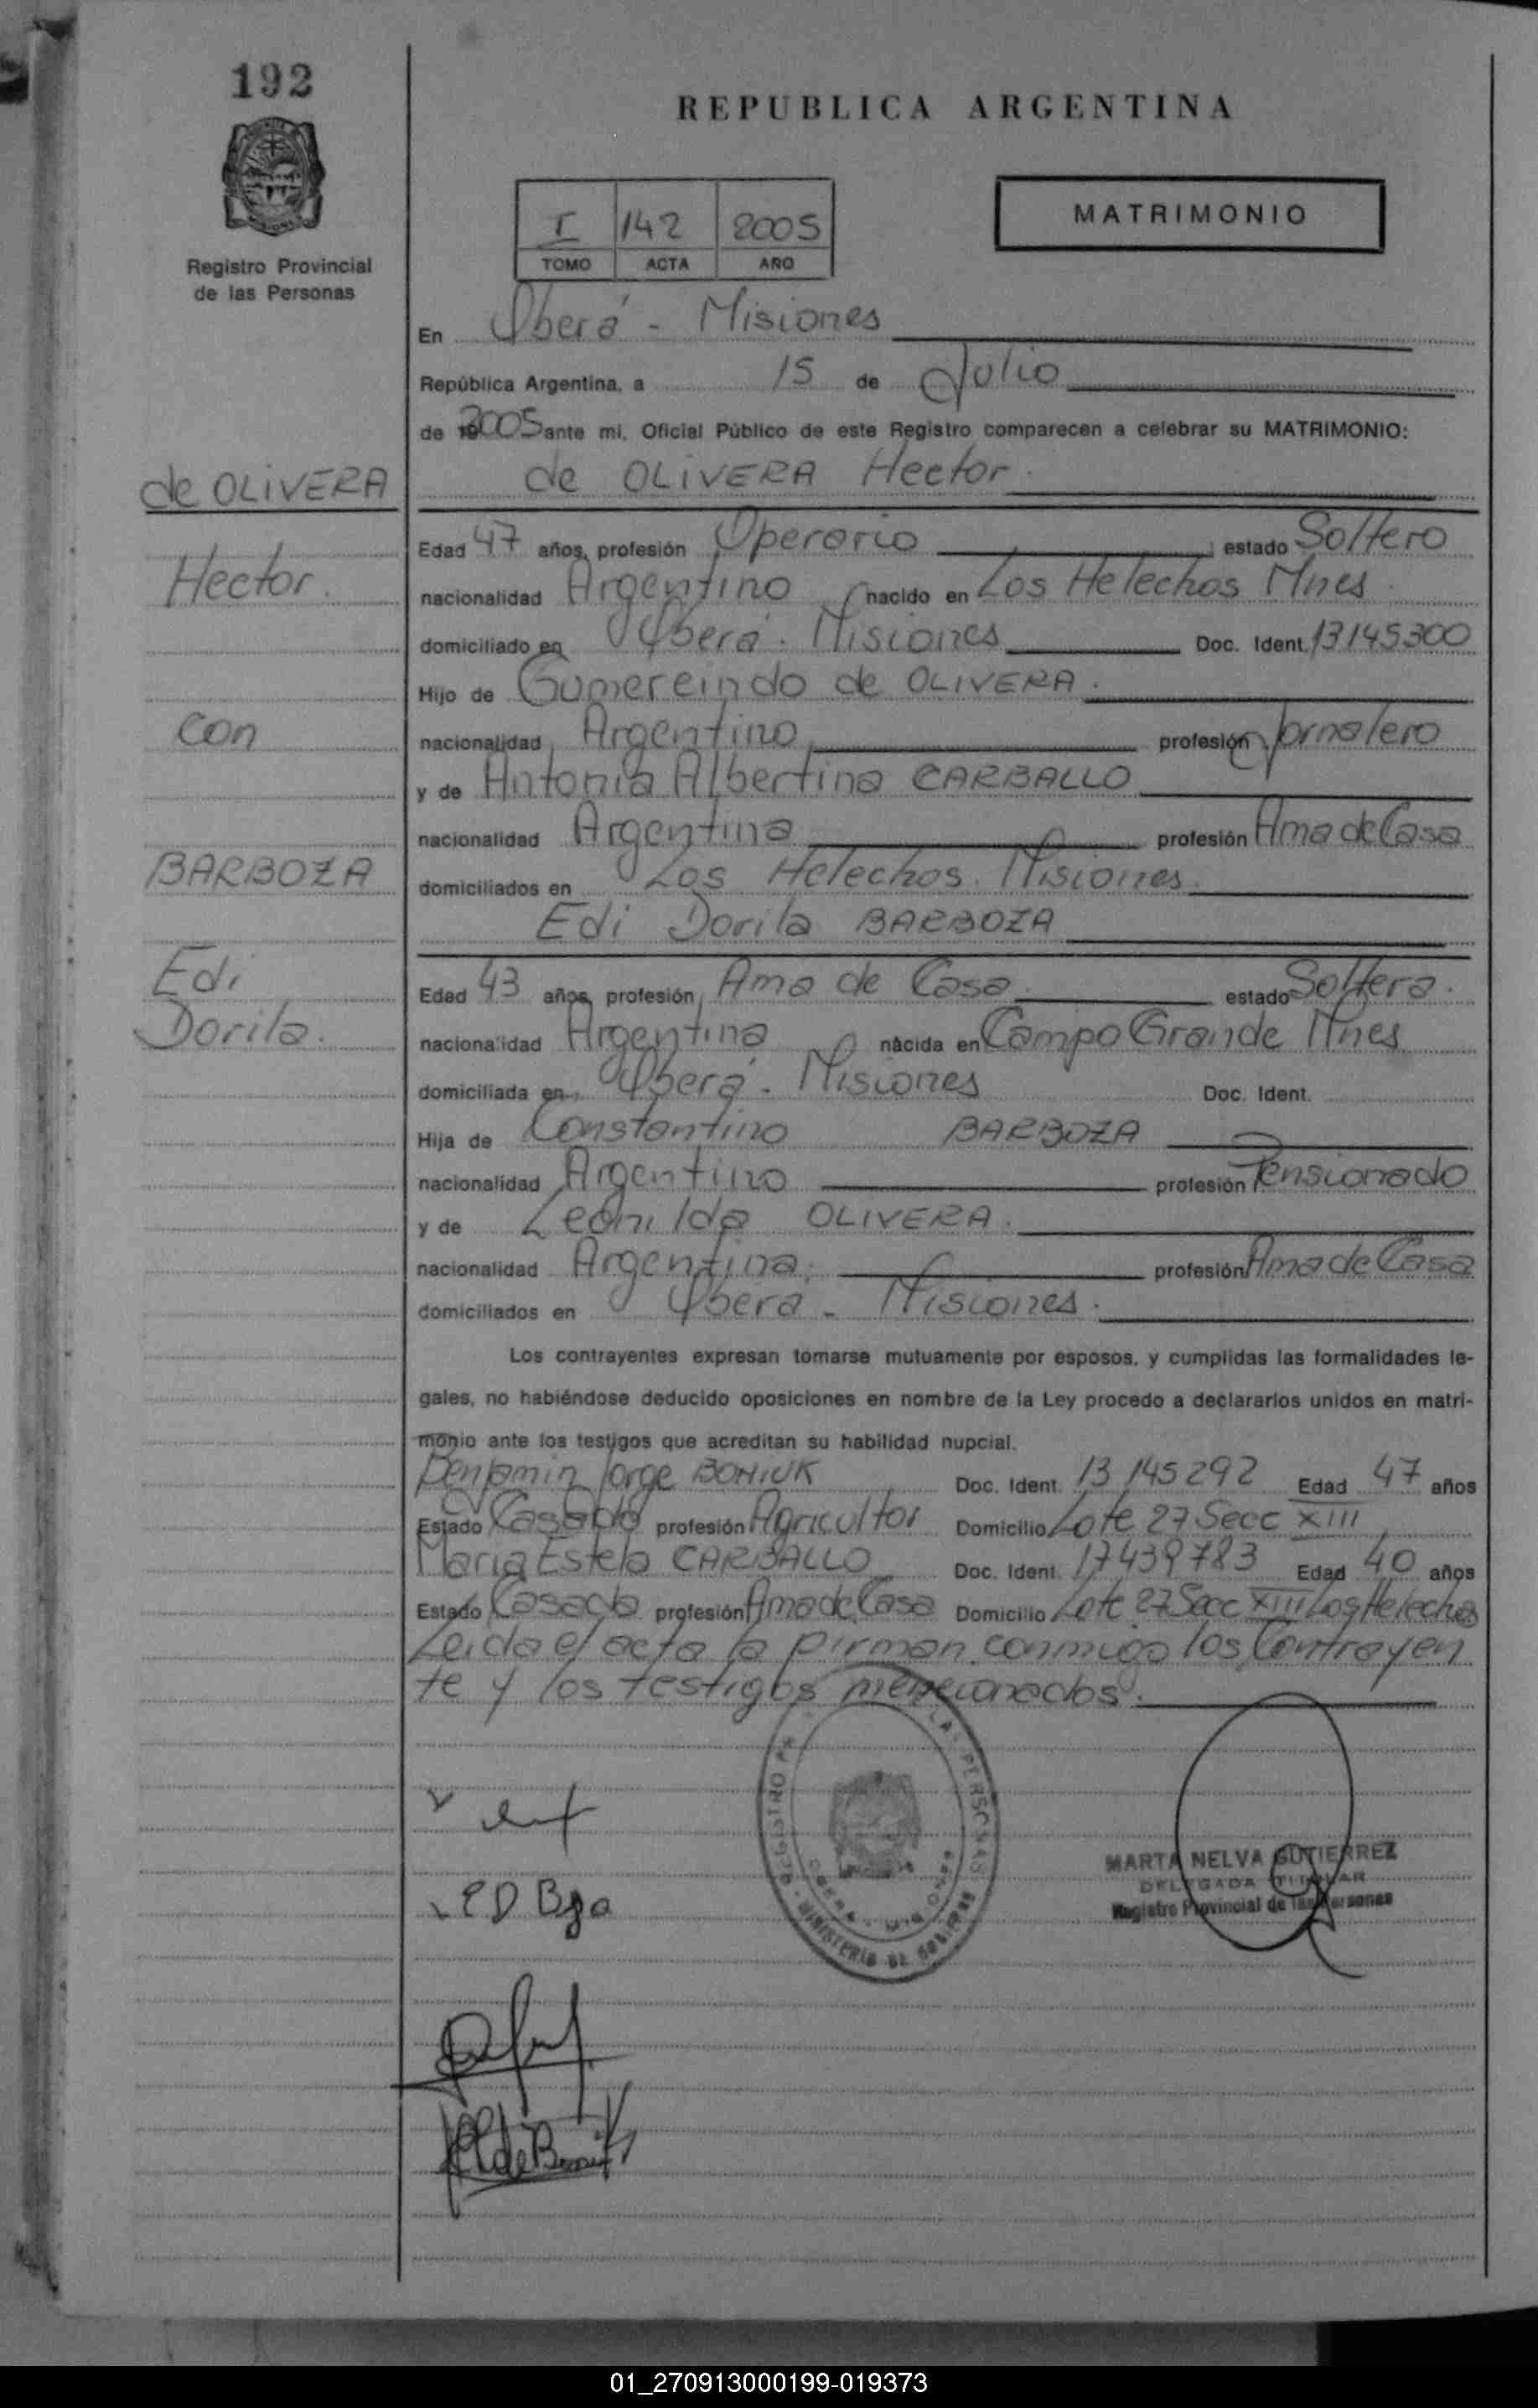 192
REPUBLICA ARGENTINA
I 142 2005
TOMO ACTA AÑO
MATRIMONIO
Registro Provincial
de las Personas
En Oberá - Misiones
República Argentina, a 15 de Julio
de 2005 ante mi, Oficial Público de este Registro comparecen a celebrar su MATRIMONIO:
de OLIVERA
Hector.
con
BARBOZA
Edi
Dorila.
de OLIVERA Hector.
Edad 47 años, profesión Operario estado Soltero
nacionalidad Argentino nacido en Los Helechos Mnes.
domiciliado en Oberá. Misiones Doc. Ident. 13145300
Hijo de Gumereindo de OLIVERA.
nacionalidad Argentino profesión Jornalero
y de Antonia Albertina CARBALLO
nacionalidad Argentina profesión Ama de Casa
domiciliados en Los Helechos. Misiones.
Edi Dorila BARBOZA
Edad 43 años, profesión Ama de Casa estado Soltera.
nacionalidad Argentina nacida en Campo Grande Mnes
domiciliada en Oberá - Misiones Doc. Ident.
Hija de Constantino BARBOZA
nacionalidad Argentino profesión Pensionado
y de Leonilda OLIVERA.
nacionalidad Argentina. profesión Ama de Casa
domiciliados en Oberá - Misiones.
Los contrayentes expresan tomarse mutuamente por esposos, y cumplidas las formalidades le-
gales, no habiéndose deducido oposiciones en nombre de la Ley procedo a declararlos unidos en matri-
monio ante los testigos que acreditan su habilidad nupcial.
Benjamin Jorge BONIUK Doc. Ident. 13145292 Edad 47 años
Estado Casado profesión Agricultor Domicilio Lote 27 Secc XIII
Maria Estela CARBALLO Doc. Ident. 17439783 Edad 40 años
Estado Casada profesión Ama de Casa Domicilio Lote 27 Secc XIII Los Helechos
Leida el acta la firman conmigo los Contrayen
te y los testigos mencionados.
MARTA NELVA GUTIERREZ
DELEGADA TITULAR
Registro Provincial de las Personas
REGISTRO LAS PERSONAS
MINISTERIO DE GOBIERNO
01_270913000199-019373